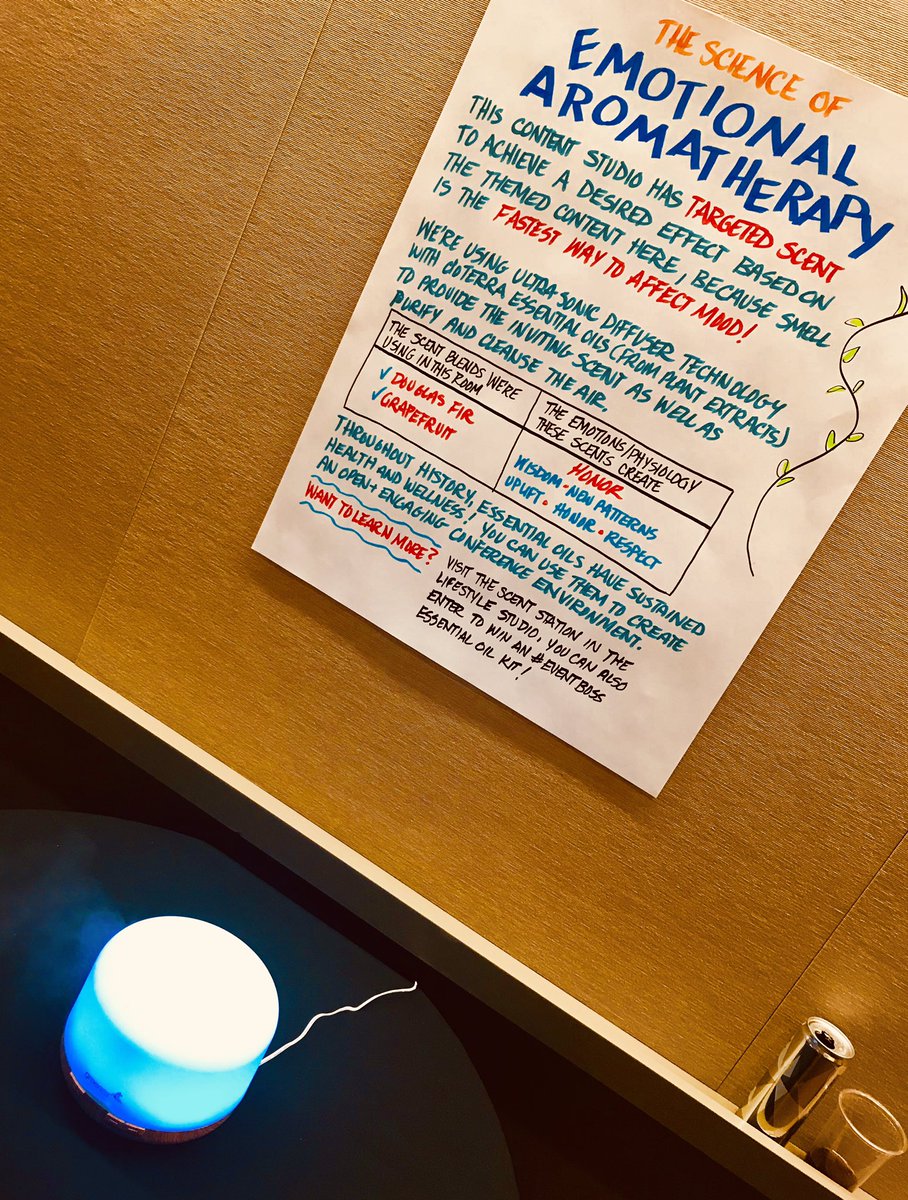 THE SCIENCE OF
EMOTIONAL
AROMATHERAPY
THIS CONTENT STUDIO HAS TARGETED SCENT
TO ACHIEVE A DESIRED EFFECT BASED ON
THE THEMED CONTENT HERE, BECAUSE SMELL
IS THE FASTEST WAY TO AFFECT MOOD!
WE'RE USING ULTRA-SONIC DIFFUSER TECHNOLOGY
WITH DOTERRA ESSENTIAL OILS (FROM PLANT EXTRACTS)
TO PROVIDE THE INVITING SCENT AS WELL AS
PURIFY AND CLEANSE THE AIR.
THE SCENT BLENDS WE'RE
USING IN THIS ROOM
✓ DOUGLAS FIR
✓ GRAPEFRUIT
THE EMOTIONS/PHYSIOLOGY
THESE SCENTS CREATE
HONOR
WISDOM • NEW PATTERNS
UPLIFT • HONOR • RESPECT
THROUGHOUT HISTORY, ESSENTIAL OILS HAVE SUSTAINED
HEALTH AND WELLNESS! YOU CAN USE THEM TO CREATE
AN OPEN + ENGAGING CONFERENCE ENVIRONMENT.
WANT TO LEARN MORE?
VISIT THE SCENT STATION IN THE
LIFESTYLE STUDIO. YOU CAN ALSO
ENTER TO WIN AN #EVENTBOSS
ESSENTIAL OIL KIT!